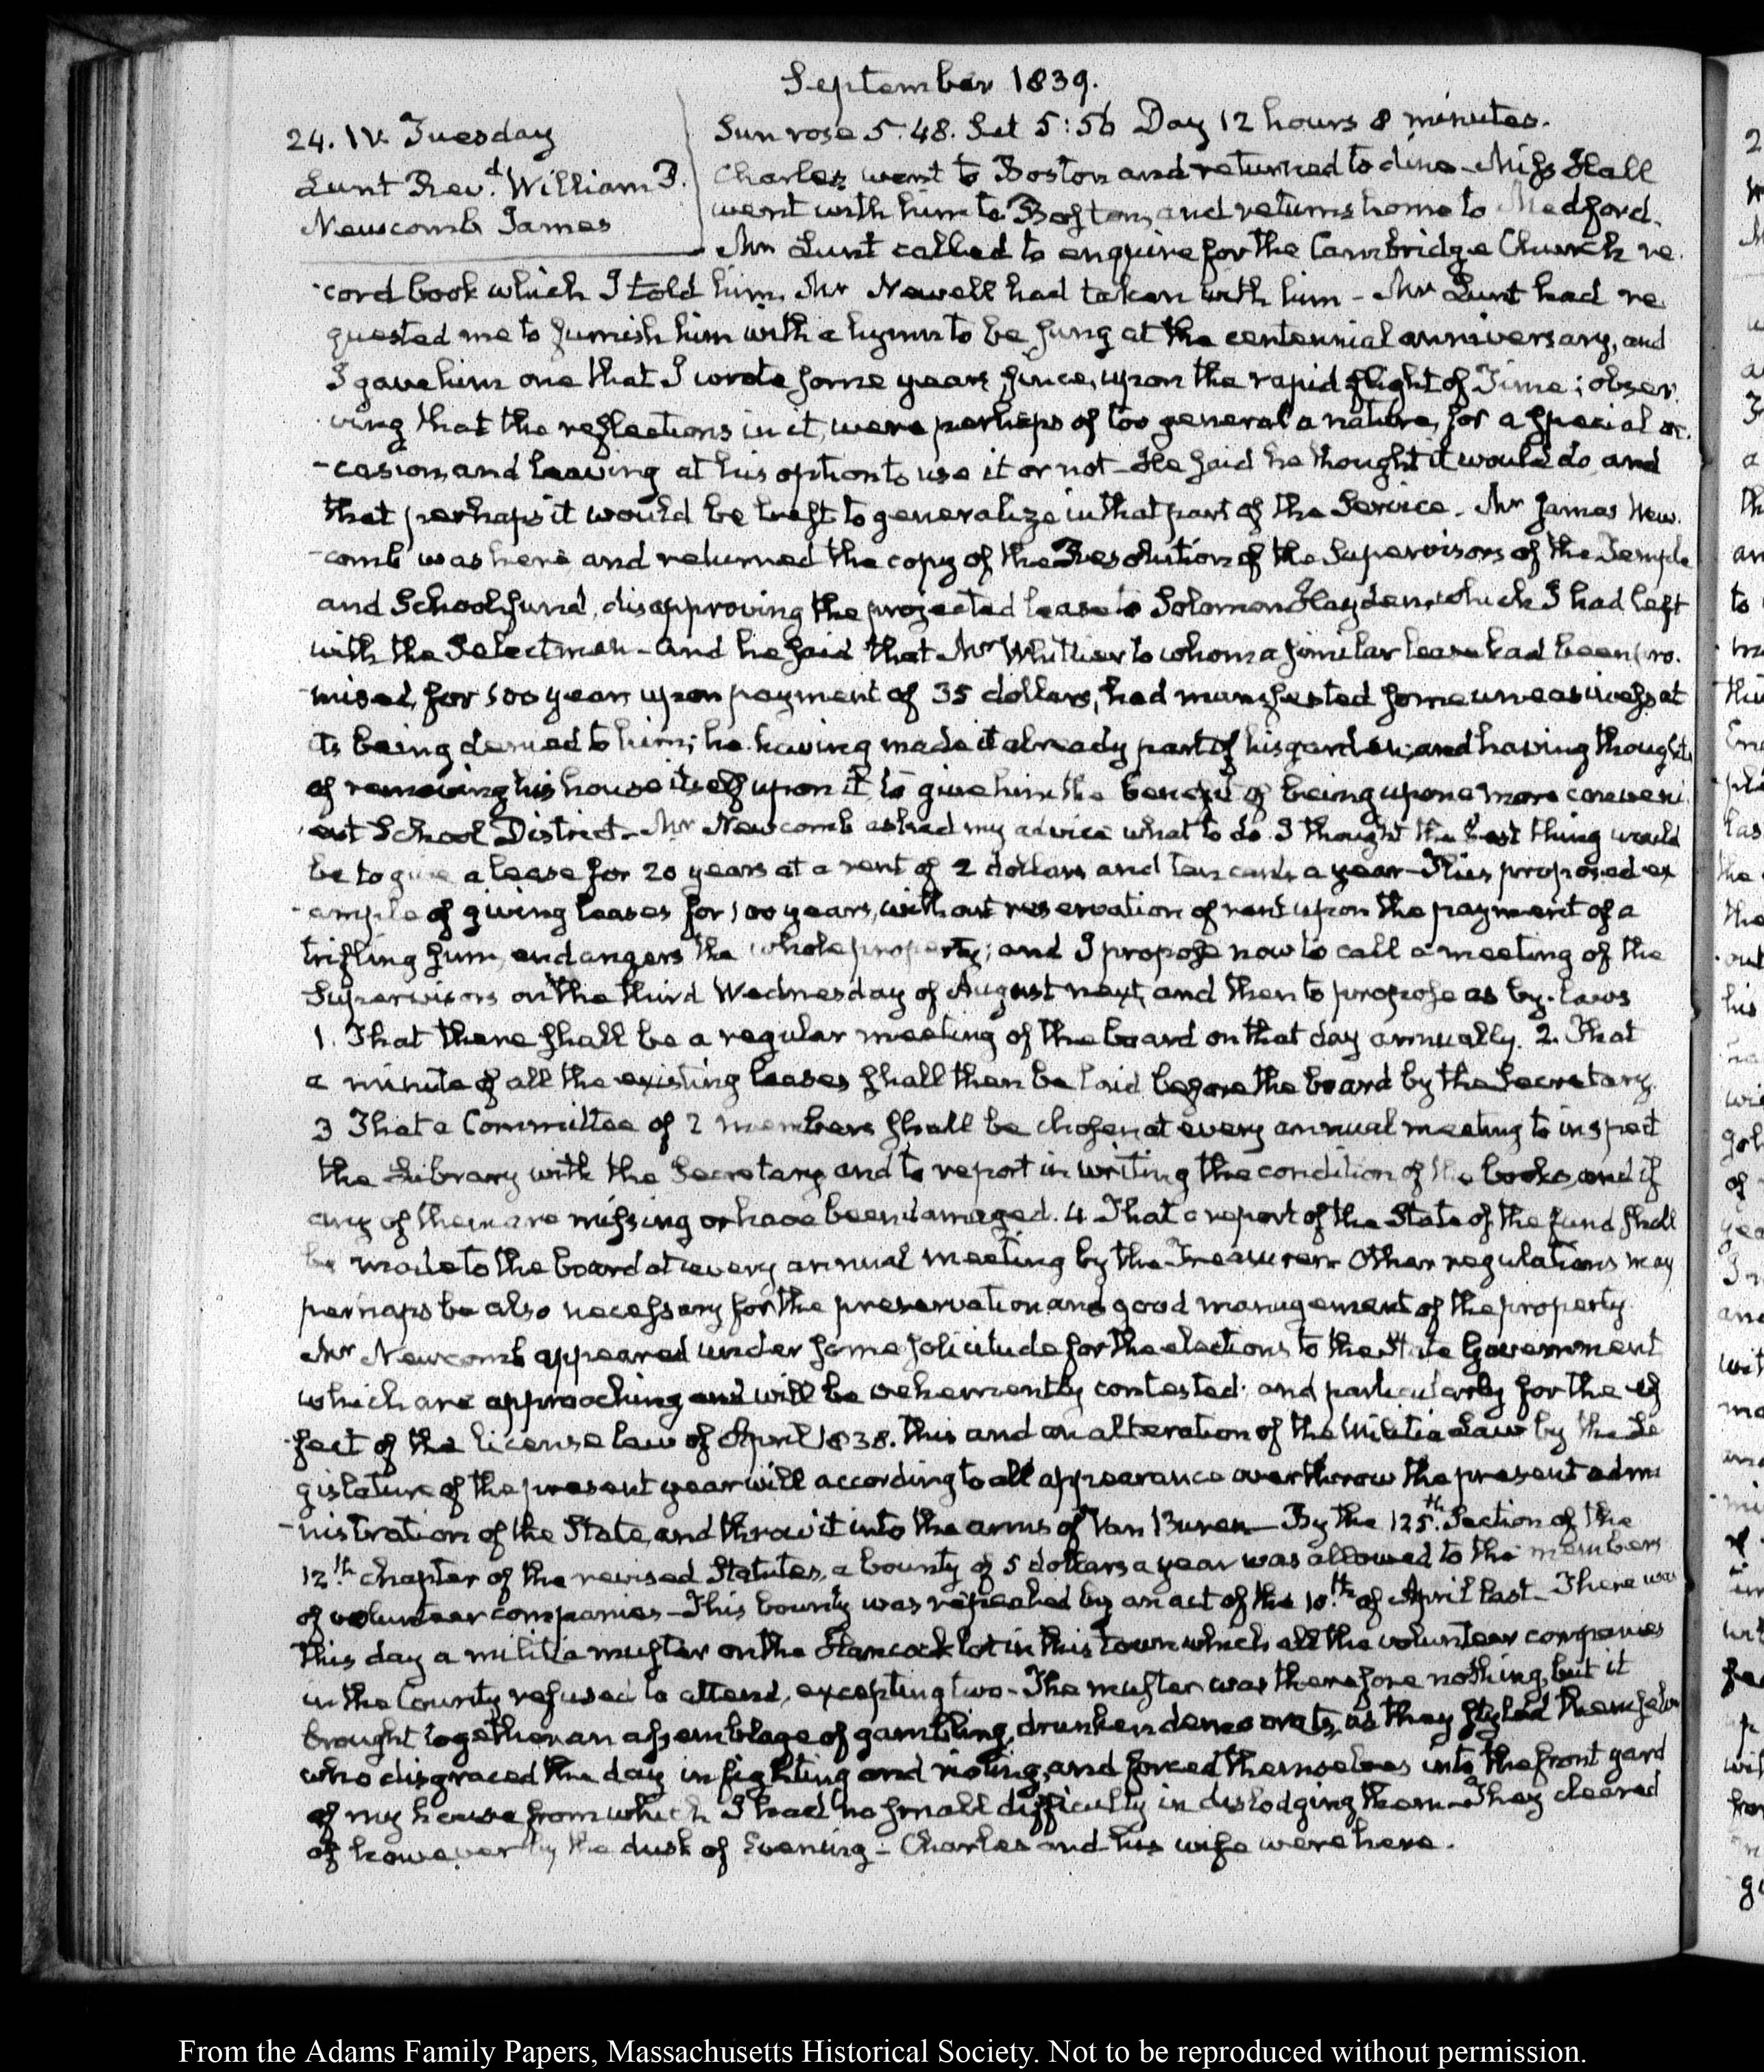 September 1839.
24. IV. Tuesday
Lunt Rev.d William P.
Newcomb James
Sun rose 5:48. Set 5:56 Day 12 hours 8 minutes.
Charles went to Boston and returned to dine - Miss Hall
went with him to Boston, and returns home to Medford.
Mr Lunt called to enquire for the Cambridge Church re-
-cord book which I told him, Mr Newell had taken with him - Mr Lunt had re-
quested me to furnish him with a hymn to be sung at the centennial anniversary, and
I gave him one that I wrote some years since, upon the rapid flight of Time; obser-
ving that the reflections in it, were perhaps of too general a nature, for a special oc-
-casion, and leaving at his option to use it or not - He said he thought it would do, and
that perhaps it would be best to generalize in that part of the Service. Mr James New-
-comb was here and returned the copy of the Resolution of the Supervisors of the Temple
and School fund, disapproving the projected lease to Solomon Hayden, which I had left
with the Selectmen - and he said that Mr Whittier to whom a similar lease had been pro-
-mised for 100 years upon payment of 35 dollars, had manifested some uneasiness at
its being denied to him; he having made it already part of his garden; and having thoughts
of removing his house itself upon it, to give him the benefit of being upon a more conveni-
ent School District - Mr Newcomb asked my advice what to do. I thought the best thing would
be to give a lease for 20 years at a rent of 2 dollars and ten cents a year - This proposed ex-
-ample of giving leases for 100 years, without reservation of rent upon the payment of a
trifling sum, endangers the whole property; and I propose now to call a meeting of the
Supervisors on the third Wednesday of August next, and then to propose as by-laws
1. That there shall be a regular meeting of the board on that day annually. 2. That
a minute of all the existing leases shall then be laid before the board by the Secretary.
3 That a Committee of 2 members shall be chosen at every annual meeting to inspect
the Library with the Secretary and to report in writing the condition of the books, and if
any of them are missing or have been damaged. 4 That a report of the State of the fund shall
be made to the board at every annual meeting by the Treasurer. Other regulations may
perhaps be also necessary for the preservation and good management of the property.
Mr Newcomb appeared under some solicitude for the elections to the State Government
which are approaching and will be vehemently contested; and particularly for the ef-
-fect of the license law of April 1838. this and an alteration of the Militia Law by the Le-
gislature of the present year will according to all appearance overthrow the present admi-
-nistration of the State, and throw it into the arms of Van Buren - By the 125.th Section of the
12.th chapter of the revised Statutes, a bounty of 5 dollars a year was allowed to the members
of volunteer companies - This bounty was repealed by an act of the 10.th of April last - There was
this day a militia muster on the Hancock lot in this town which all the volunteer companies
in the County refused to attend, excepting two - The muster was therefore nothing, but it
brought together an assemblage of gambling, drunken democrats, as they styled themselves
who disgraced the day in fighting and rioting, and forced themselves into the front yard
of my house from which I had no small difficulty in dislodging them - They cleared
off however by the dusk of Evening - Charles and his wife were here.
From the Adams Family Papers, Massachusetts Historical Society. Not to be reproduced without permission.